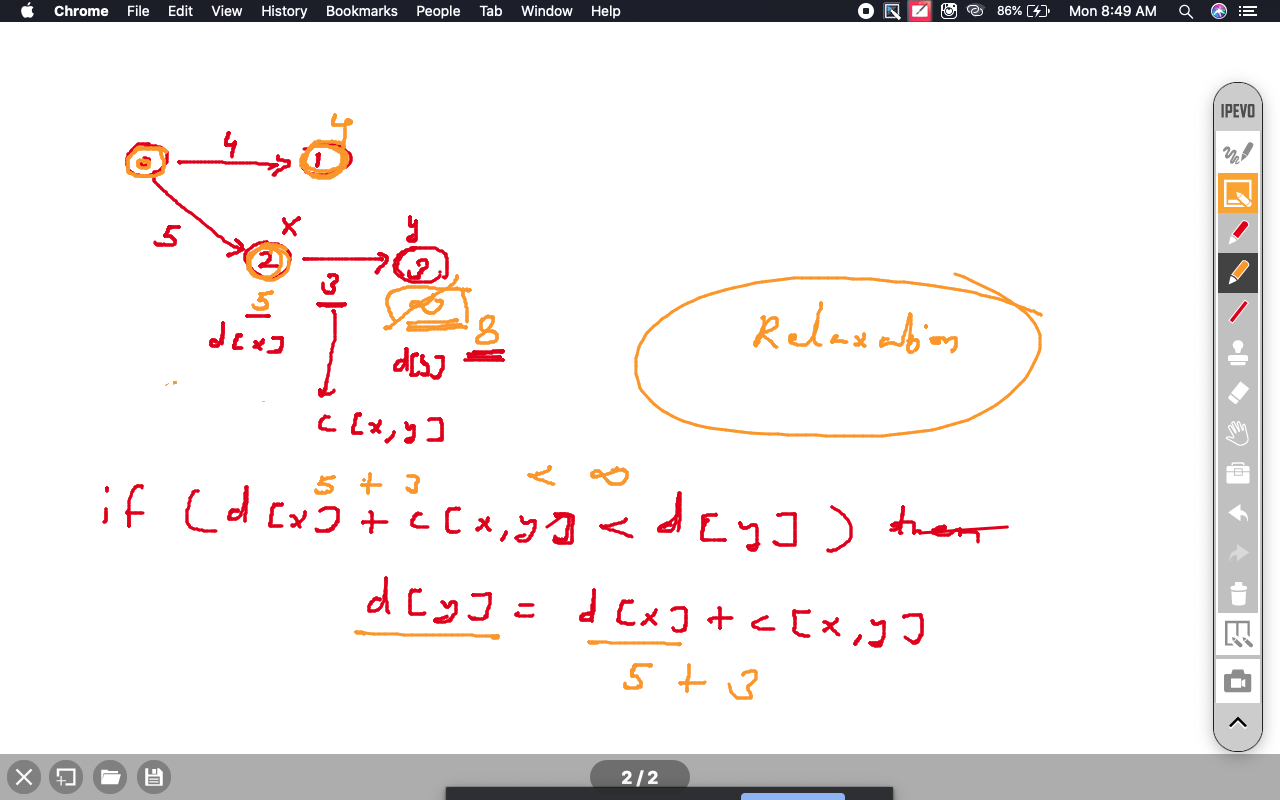 Chrome File Edit View History Bookmarks People Tab Window Help 86% Mon 8:49 AM
IPEVO
4
0 4 1
5 x y
2 3
5 3 ∞ 8
d[x] d[y]
c[x,y]
Relaxation
5 + 3 < ∞
if (d[x] + c[x,y] < d[y])
d[y] = d[x] + c[x,y]
5 + 3
2 / 2